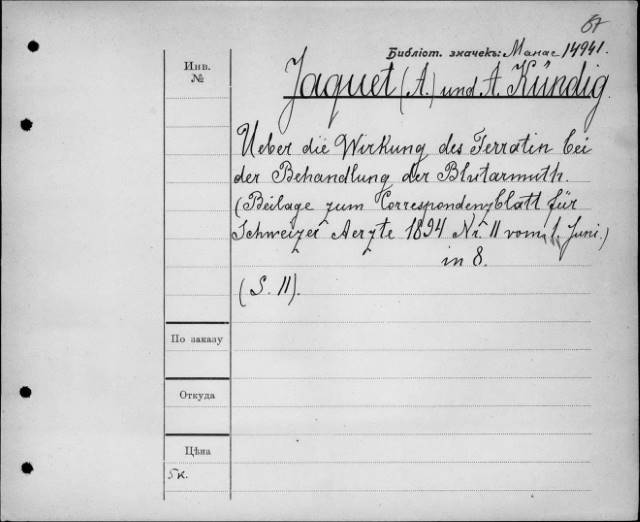 67
Библіот. значекъ: Манас 14941.
Инв.
№
Jaquet (A.) und A. Kündig.
Ueber die Wirkung des Ferratin bei
der Behandlung der Blutarmuth.
(Beilage zum Correspondenzblatt für
Schweizer Aerzte 1894 Nr. 11 vom 1. Juni.)
in 8.
(S. 11).
По заказу
Откуда
Цѣна
5к.